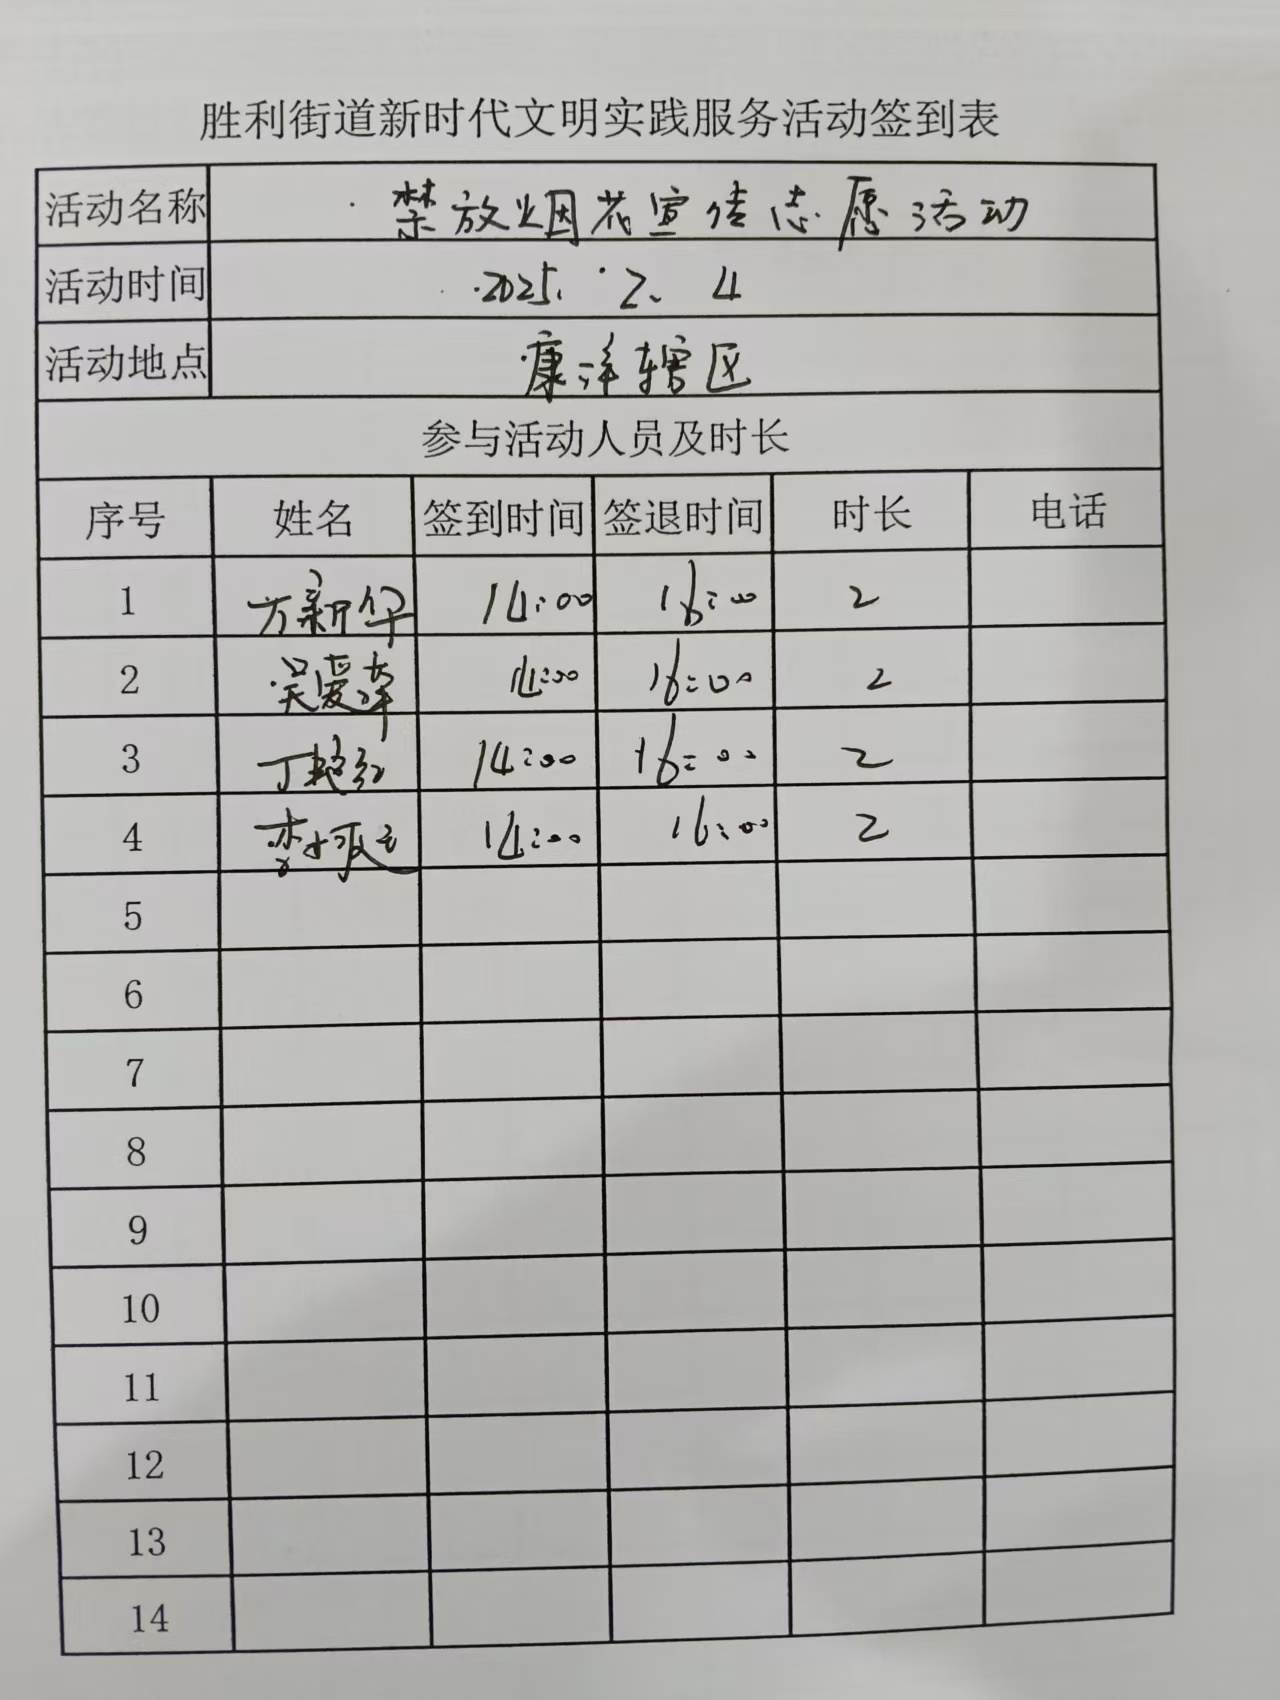 胜利街道新时代文明实践服务活动签到表
活动名称 禁放烟花宣传志愿活动
活动时间 2025. 2. 4
活动地点 康洋辖区
参与活动人员及时长
序号 姓名 签到时间 签退时间 时长 电话
1 方新华 14:00 16:00 2
2 吴爱萍 14:00 16:00 2
3 丁 红 14:00 16:00 2
4 李 14:00 16:00 2
5
6
7
8
9
10
11
12
13
14